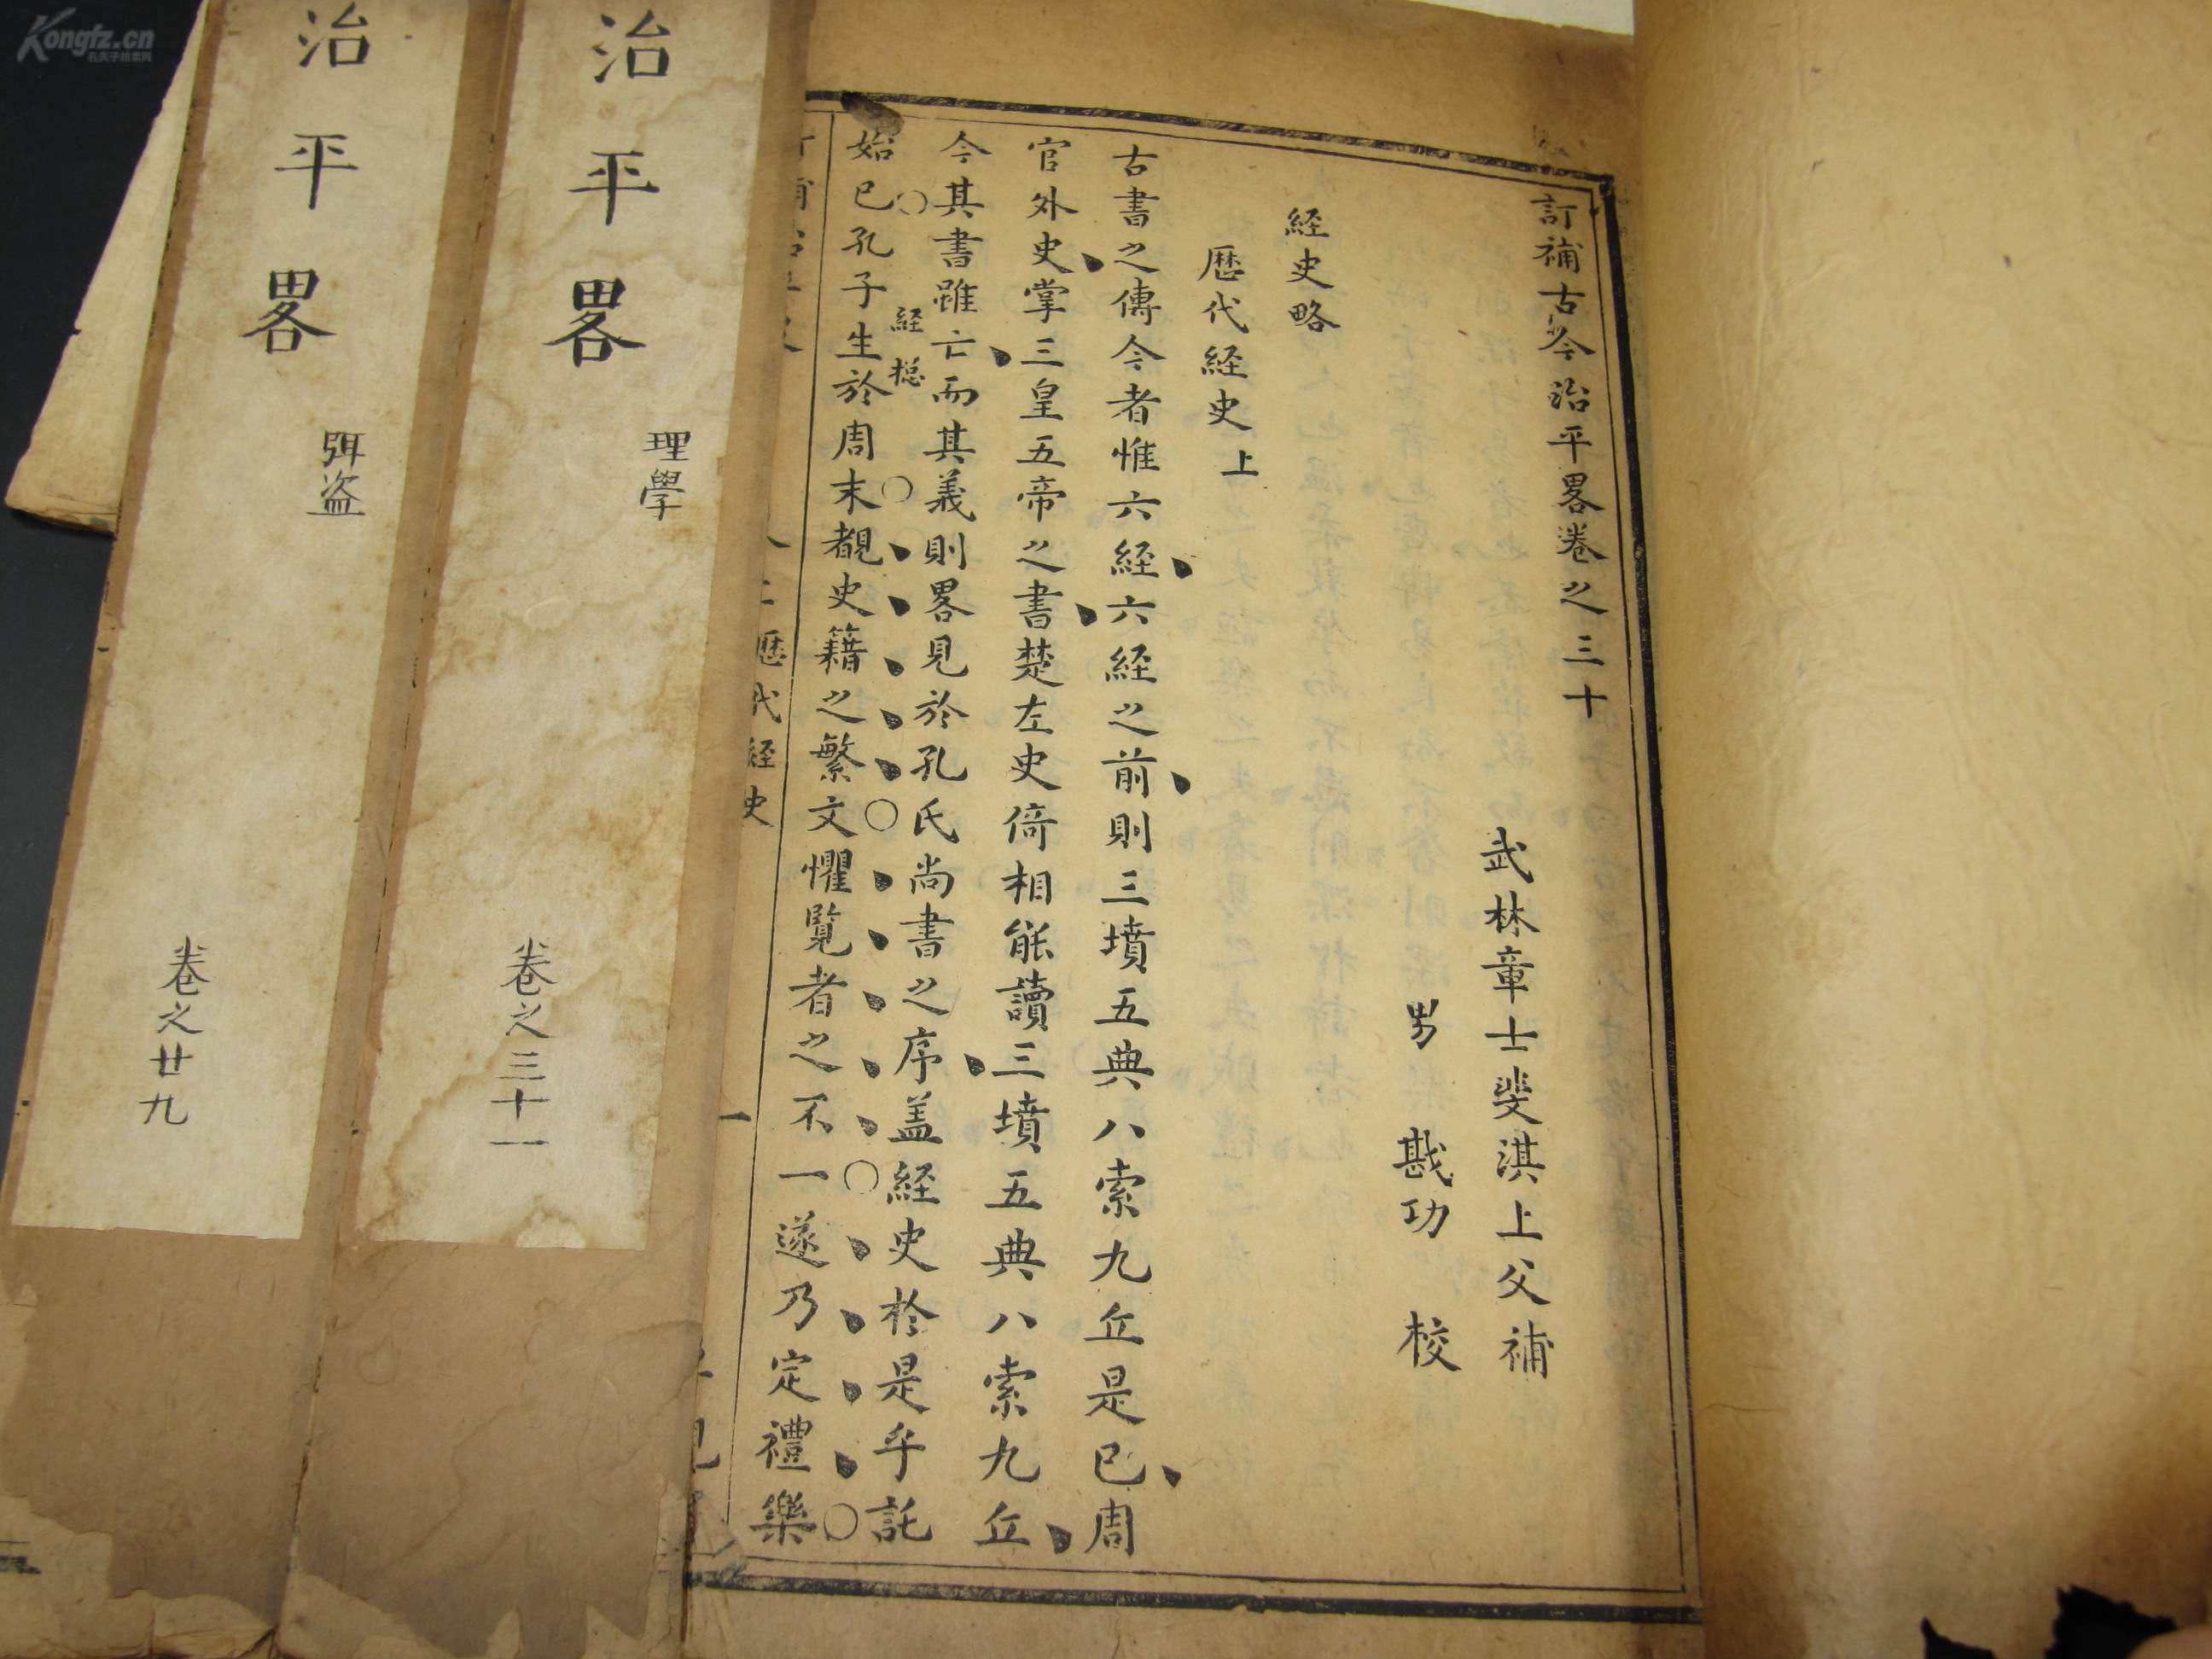 訂補古今治平畧卷之三十
武林章士斐淇上父補
男 戡功 校
経史略
歴代経史上
古書之傳今者惟六経六経之前則三墳五典八索九丘是已周
官外史掌三皇五帝之書楚左史倚相能讀三墳五典八索九丘
今其書雖亡而其義則畧見於孔氏尚書之序盖経史於是乎託
経
始已孔子生於周末覩史籍之繁文懼覧者之不一遂乃定禮樂
歴代経史
一
治平畧
理學
卷之三十一
治平畧
弭盗
卷之廿九
Kongfz.cn